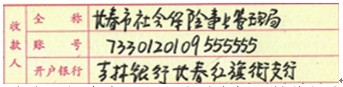 收款人
全称 长春市社会保险事业管理局
账号 7330120109555555
开户银行 吉林银行长春红旗街支行